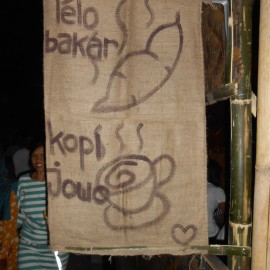 telo
bakar
kopi
jowo